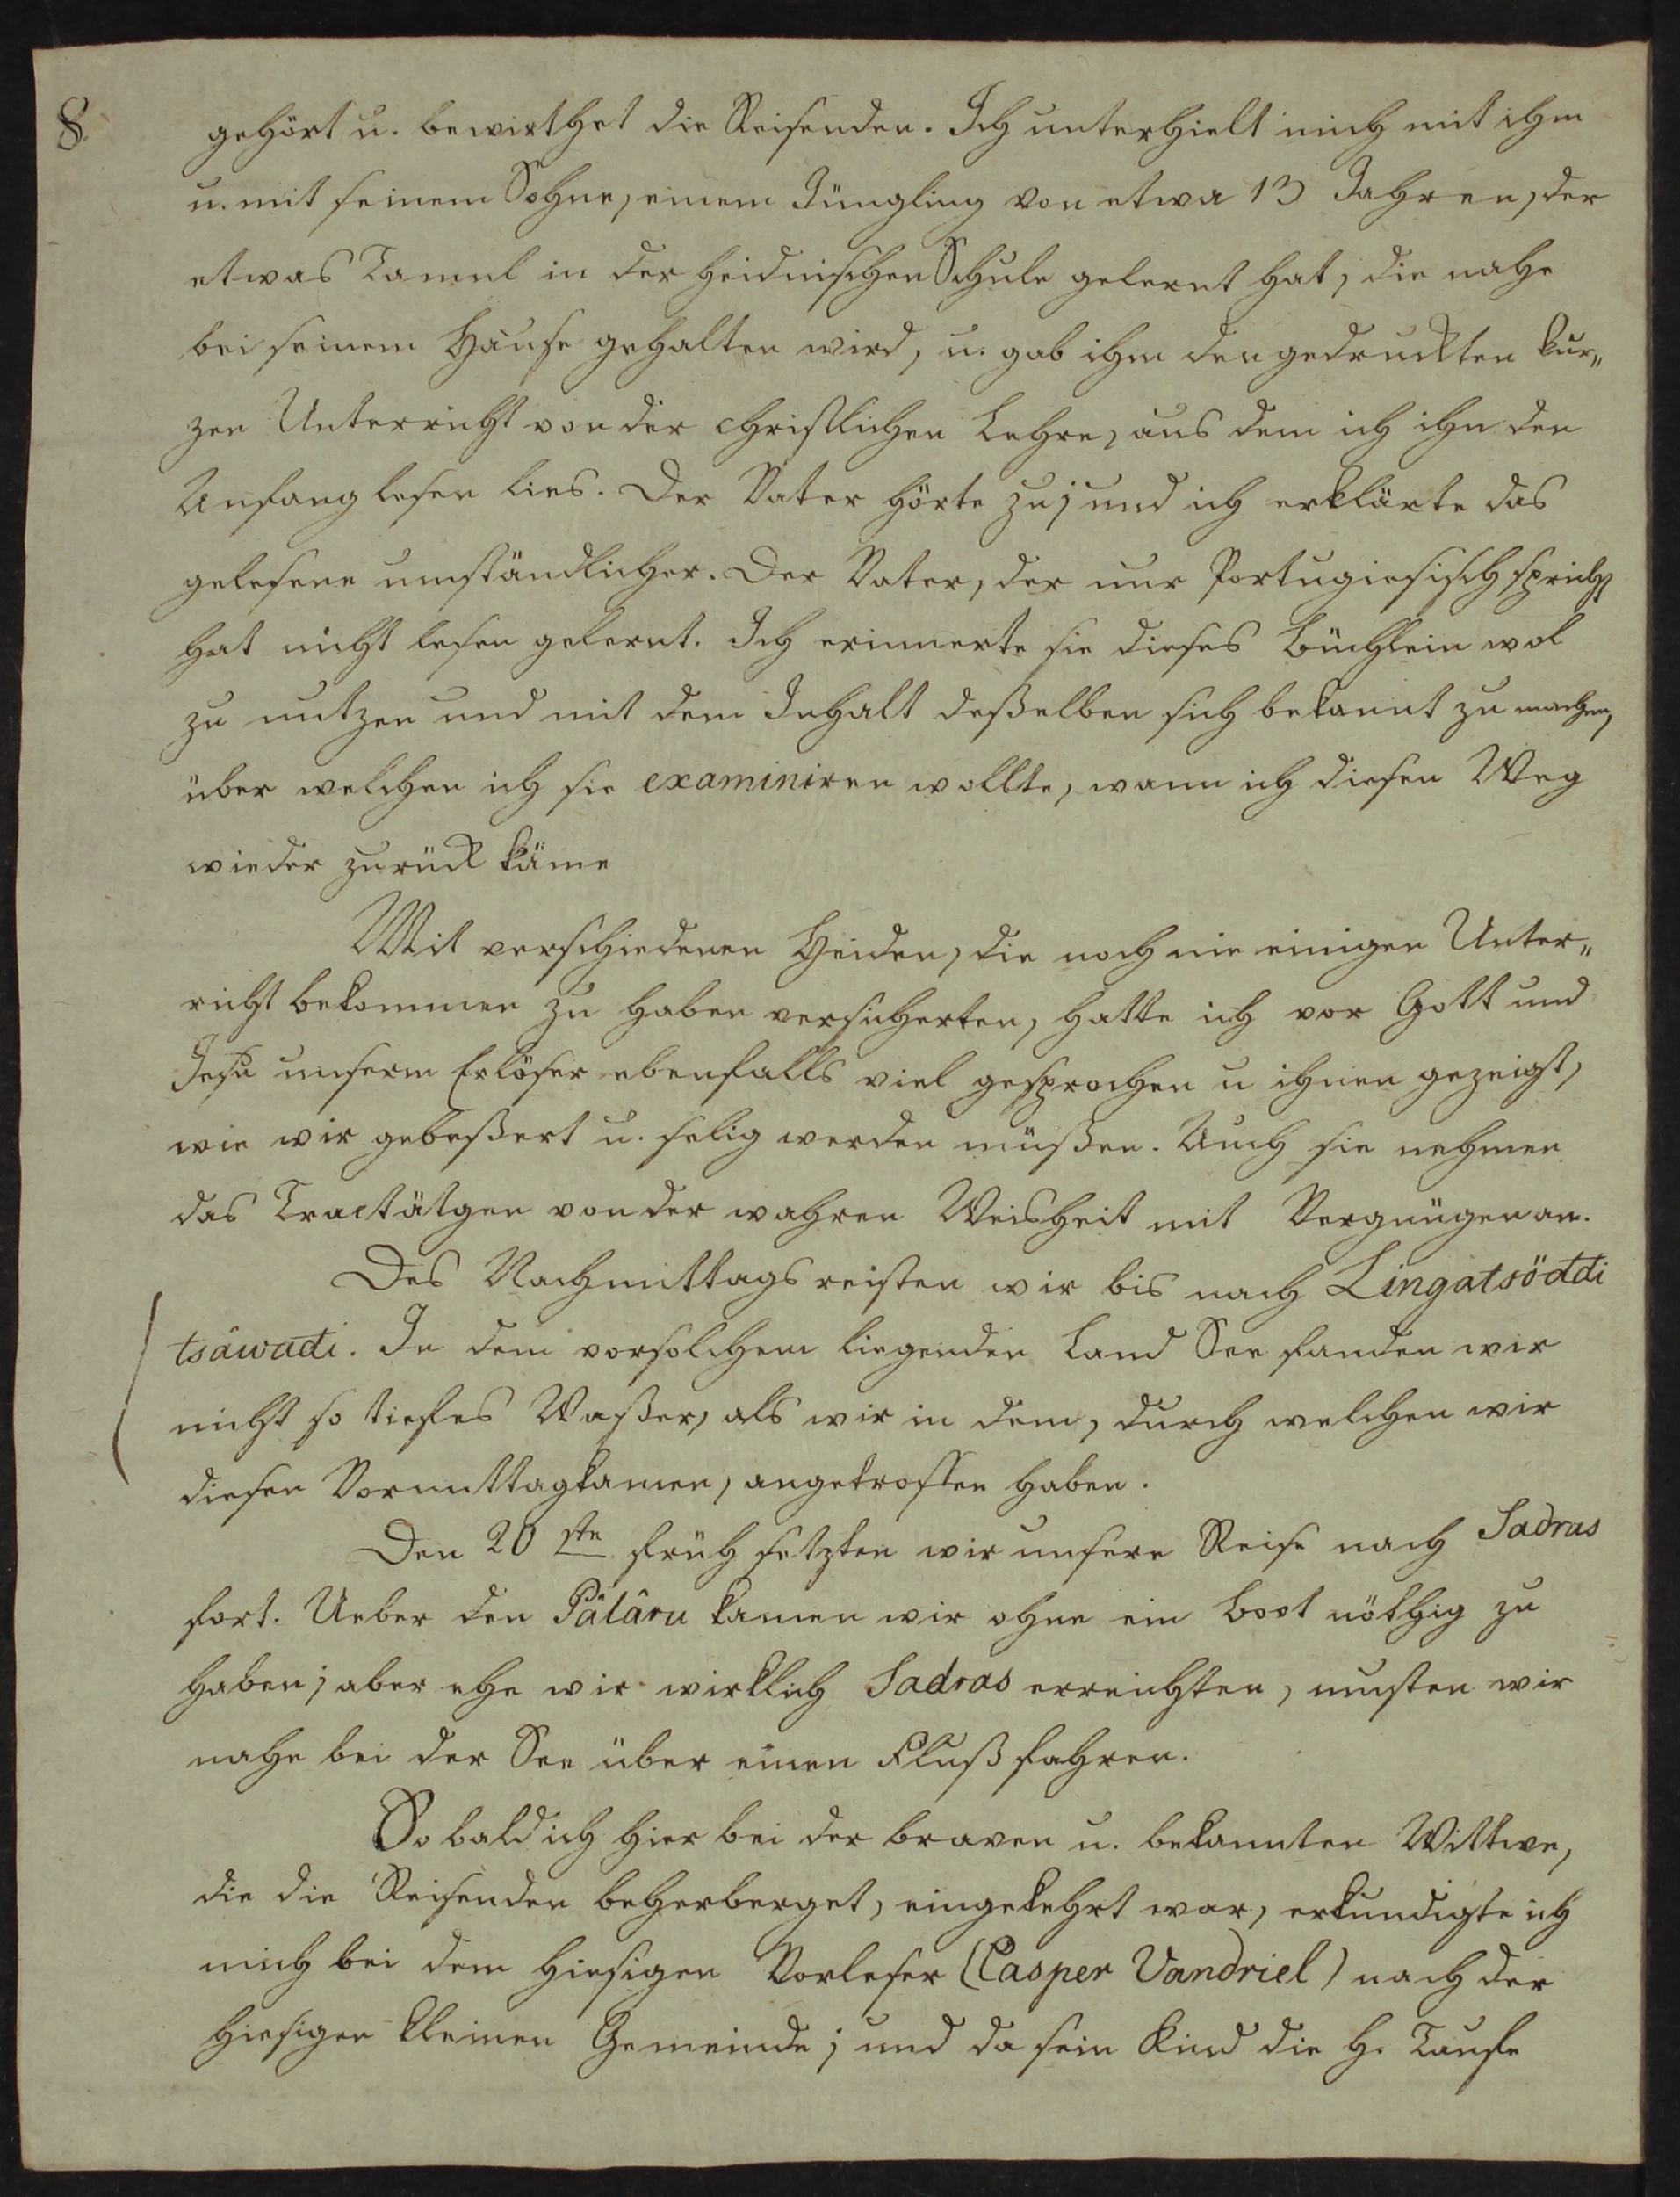 8.
gehört u. bewirthet die Reisenden. Ich unterhielt mich mit ihm
u. mit seinem Sohne, einem Jüngling von etwa 13 Jahren, der
etwas Tamul in der heidnischen Schule gelernt hat, die nahe
bei seinem Hause gehalten wird, u. gab ihm den gedruckten kur„
zen Unterricht von der christlichen Lehre, aus dem ich ihn den
Anfang lesen lies. Der Vater hörte zu; und ich erklärte das
gelesene umständlicher. Der Vater, der nur Portugiesisch spricht,
hat nicht lesen gelernt. Ich erinnerte sie dieses Büchlein wol
zu nutzen und mit dem Inhalt deßelben sich bekannt zu machen,
über welchen ich sie examiniren wollte, wann ich diesen Weg
wieder zurück käme
Mit verschiedenen Heiden, die noch nie einigen Unter„
richt bekommen zu haben versicherten, hatte ich vor Gott und
Jesu unserm Erlöser ebenfalls viel gesprochen u ihnen gezeigt,
wie wir gebeßert u. selig werden müßen. Auch sie nehmen
das Tractätgen von der wahren Weisheit mit Vergnügen an.
Des Nachmittags reisten wir bis nach Lingatsöddi
tsâwadi. In dem vor solchem liegenden Land See fanden wir
nicht so tiefes Waßer, als wir in dem, durch welchen wir
diesen Vormittag kamen, angetroffen haben.
Den 20 ste früh setzten wir unsere Reise nach Sadras
fort. Ueber den Pâlâru kamen wir ohne ein Boot nöthig zu
haben; aber ehe wir wirklich Sadras erreichten, musten wir
nahe bei der See über einen Fluß fahren.
So bald ich hier bei der braven u. bekannten Wittwe,
die die Reisenden beherberget, eingekehrt war, erkundigte ich
mich bei dem hiesigen Vorleser (Casper Vandriel) nach der
hiesigen kleinen Gemeinde; und da sein Kind die H. Taufe